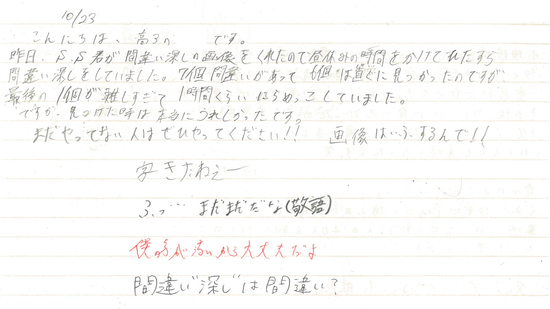 10/23
こんにちは、高3の です。
昨日、S.S君が間違い深しの画像をくれたので昼休みの時間をかけてひたすら
間違い深しをしていました。7個間違いがあって6個は普通に見つかったのですが
最後の1個が難しすぎて1時間くらいにらめっこしていました。
ですが、見つけた時は本当にうれしかったです。
まだやってない人はぜひやってください!! 画像はいふするんで!!
字きたねぇー
ふっ… まだまだだな(敬語)
僕の方が汚いから大丈夫だよ
間違い"深し"は間違い?